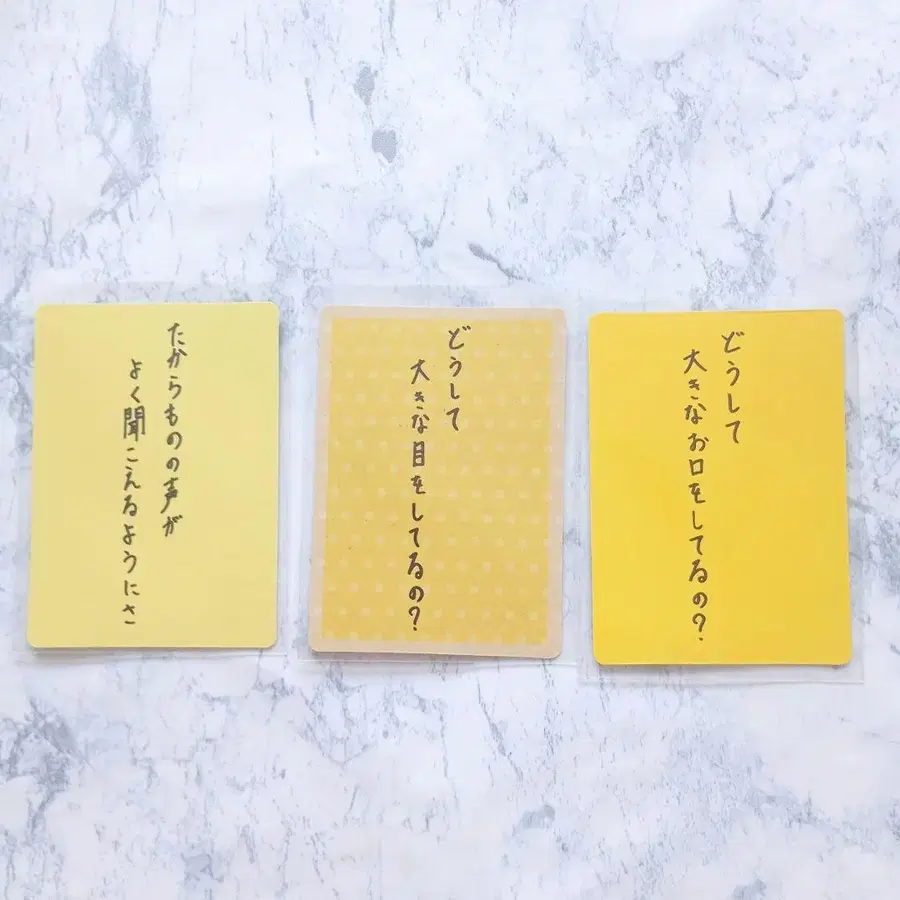 たからものの声が
よく聞こえるようにさ
どうして
大きな目をしてるの?
どうして
大きなお口をしてるの?